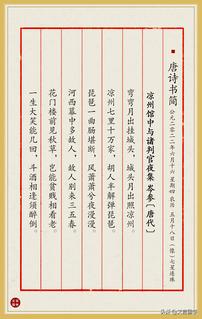 唐诗书简
公元二〇二二年六月十六 星期四 农历 五月十八日 七星连珠
凉州馆中与诸判官夜集 岑参〔唐代〕
弯弯月出挂城头，城头月出照凉州。
凉州七里十万家，胡人半解弹琵琶。
琵琶一曲肠堪断，风萧萧兮夜漫漫。
河西幕中多故人，故人别来三五春。
花门楼前见秋草，岂能贫贱相看老。
一生大笑能几回，斗酒相逢须醉倒。